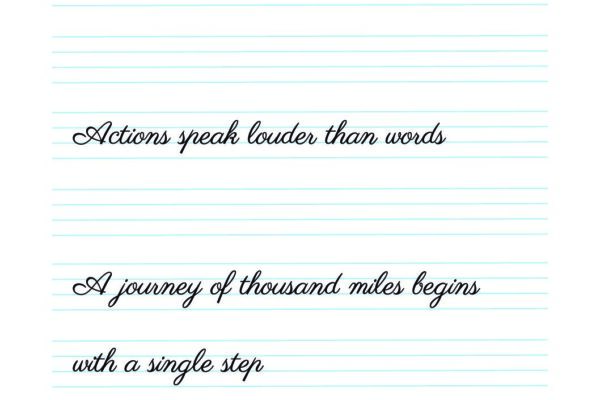 Actions speak louder than words
A journey of thousand miles begins
with a single step